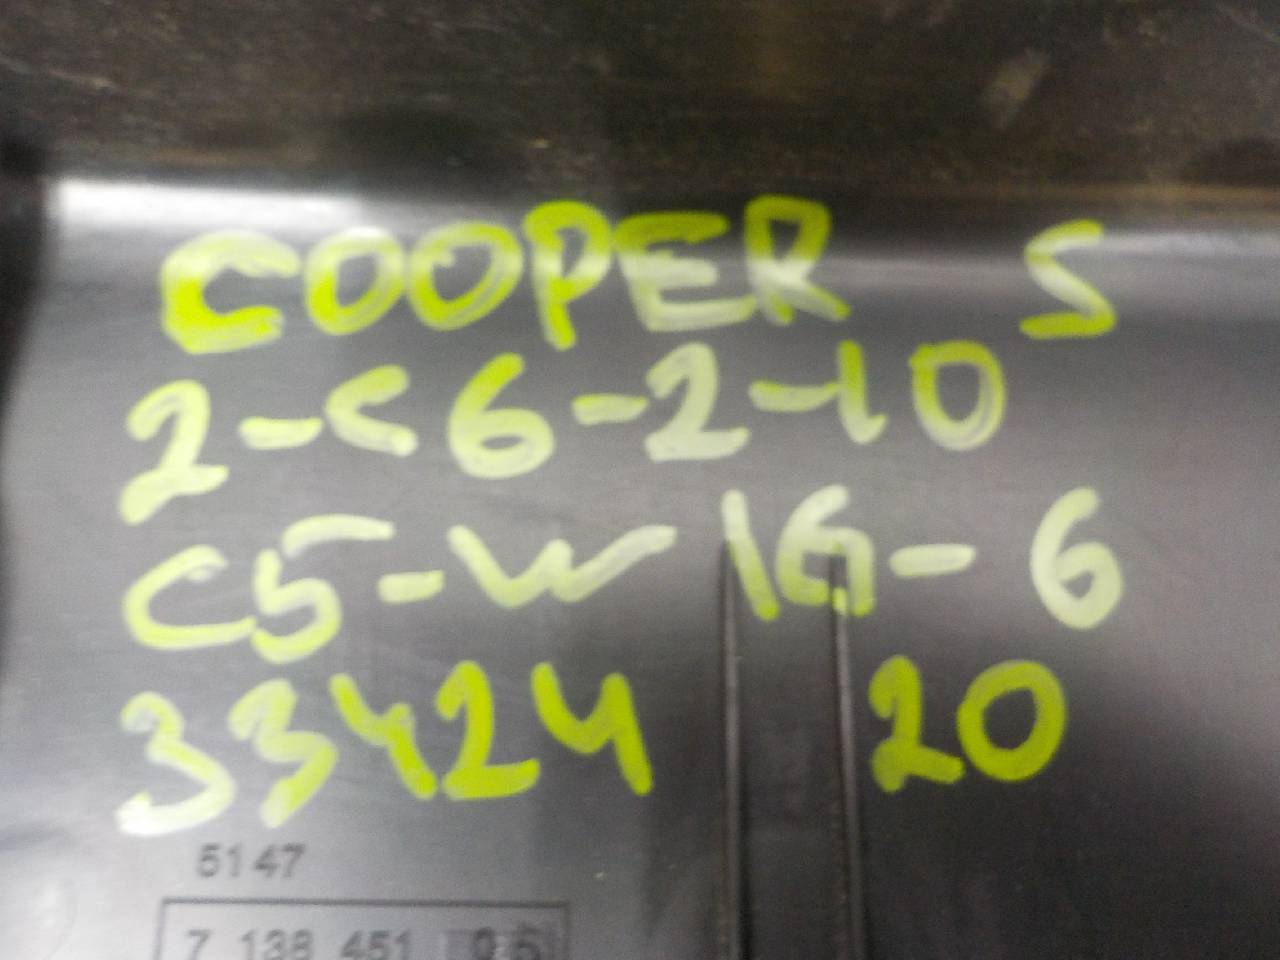 COOPER S
2-C6-2-10
C5-W 1G-6
33424 20
5147
7 138 451 05